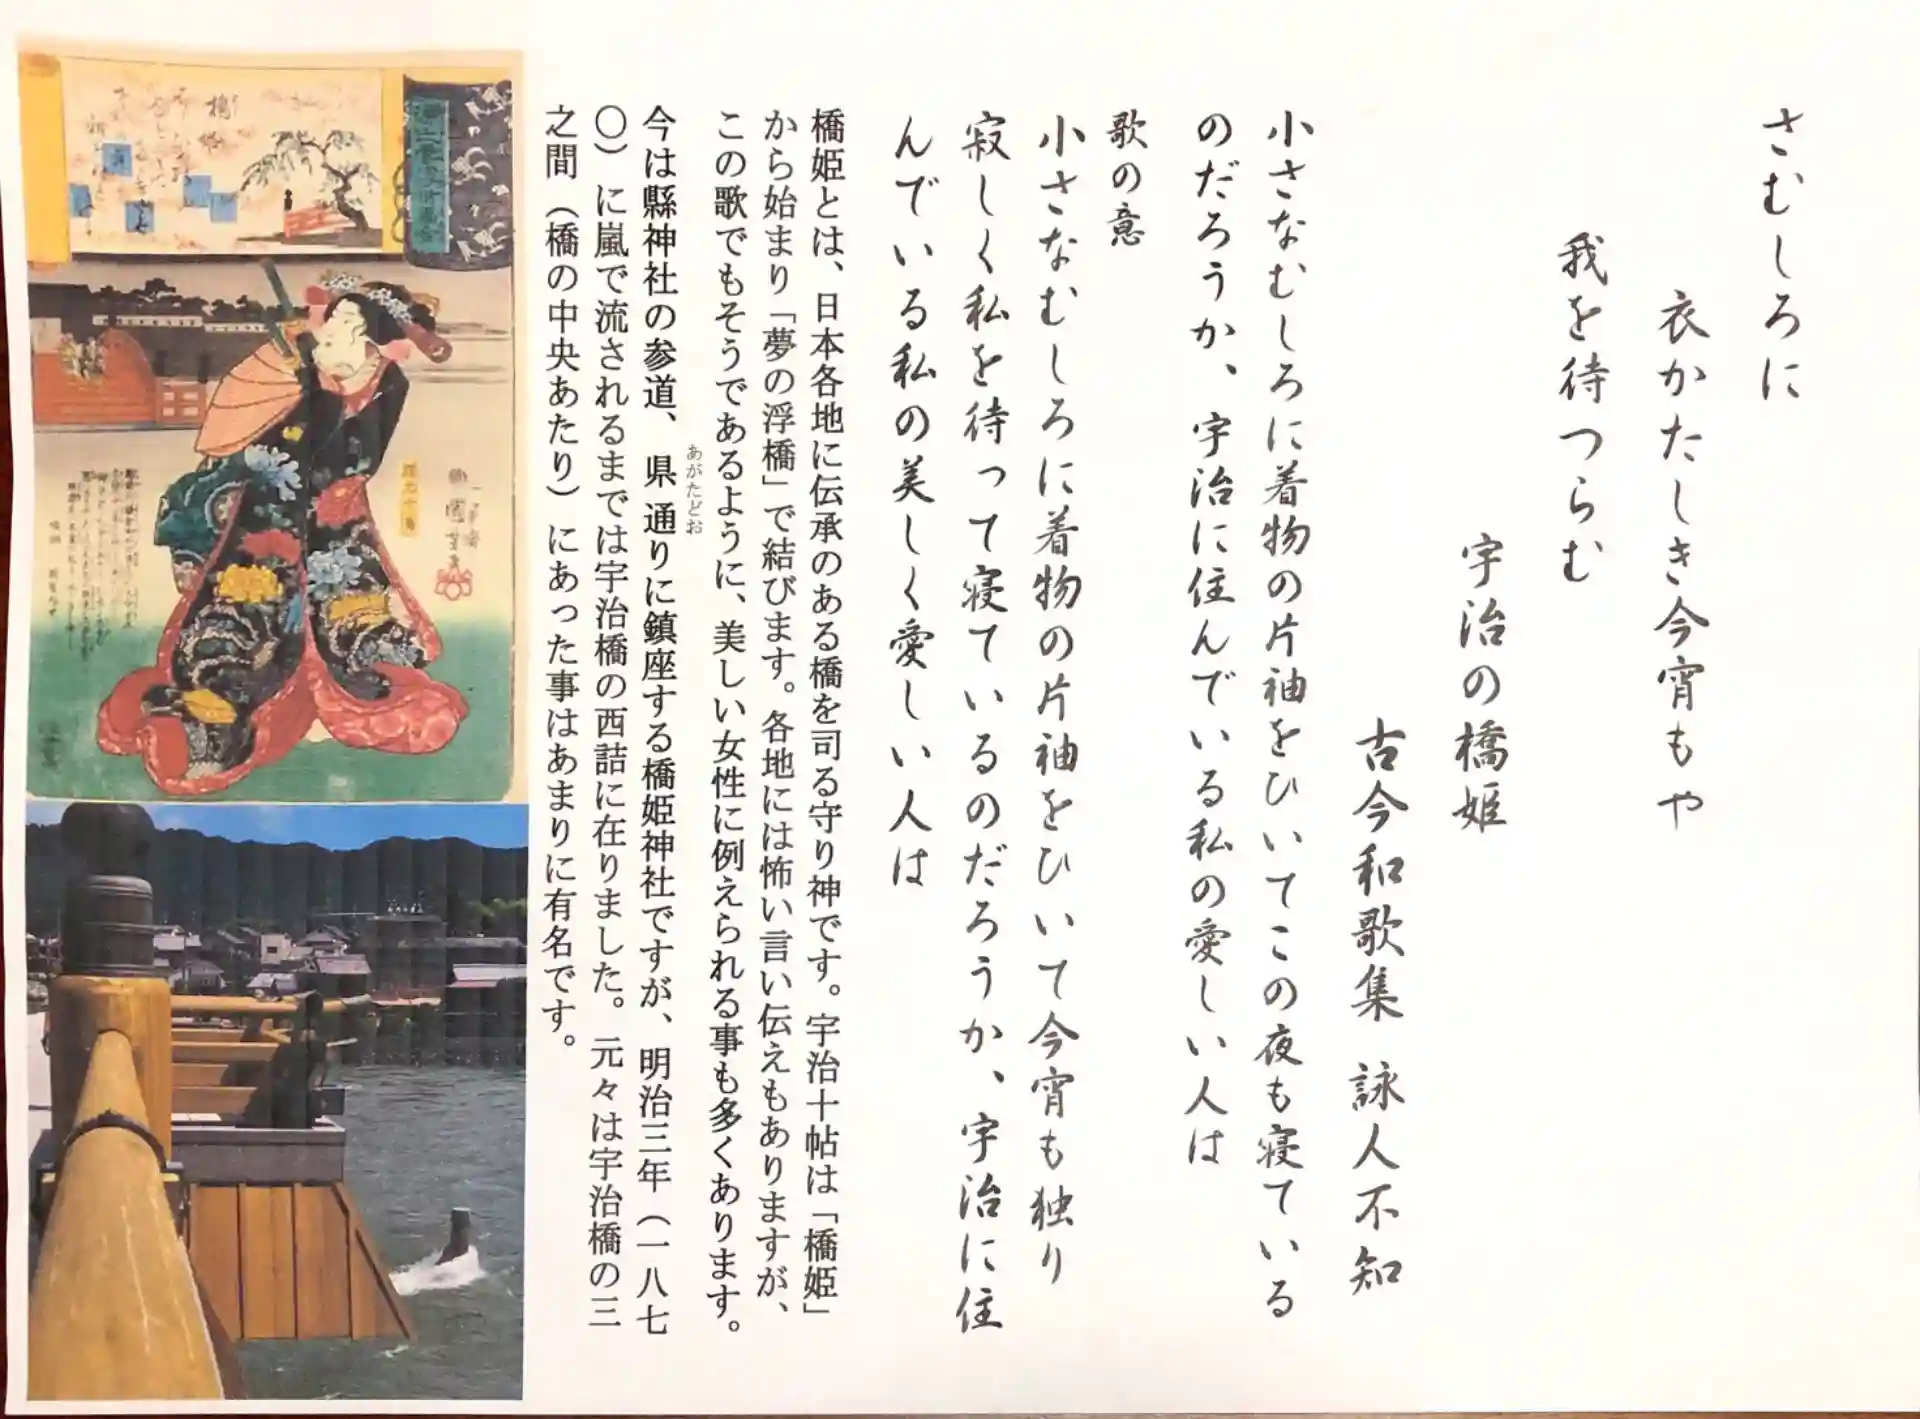 さむしろに
衣かたしき今宵もや
我を待つらむ
宇治の橋姫
古今和歌集 詠人不知
小さなむしろに着物の片袖をひいてこの夜も寝ている
のだろうか、宇治に住んでいる私の愛しい人は
歌の意
小さなむしろに着物の片袖をひいて今宵も独り
寂しく私を待って寝ているのだろうか、宇治に住
んでいる私の美しく愛しい人は
橋姫とは、日本各地に伝承のある橋を司る守り神です。宇治十帖は「橋姫」
から始まり「夢の浮橋」で結びます。各地には怖い言い伝えもありますが、
この歌でもそうであるように、美しい女性に例えられる事も多くあります。
あがたどお
今は縣神社の参道、県通りに鎮座する橋姫神社ですが、明治三年（一八七
〇）に嵐で流されるまでは宇治橋の西詰に在りました。元々は宇治橋の三
之間（橋の中央あたり）にあった事はあまりに有名です。